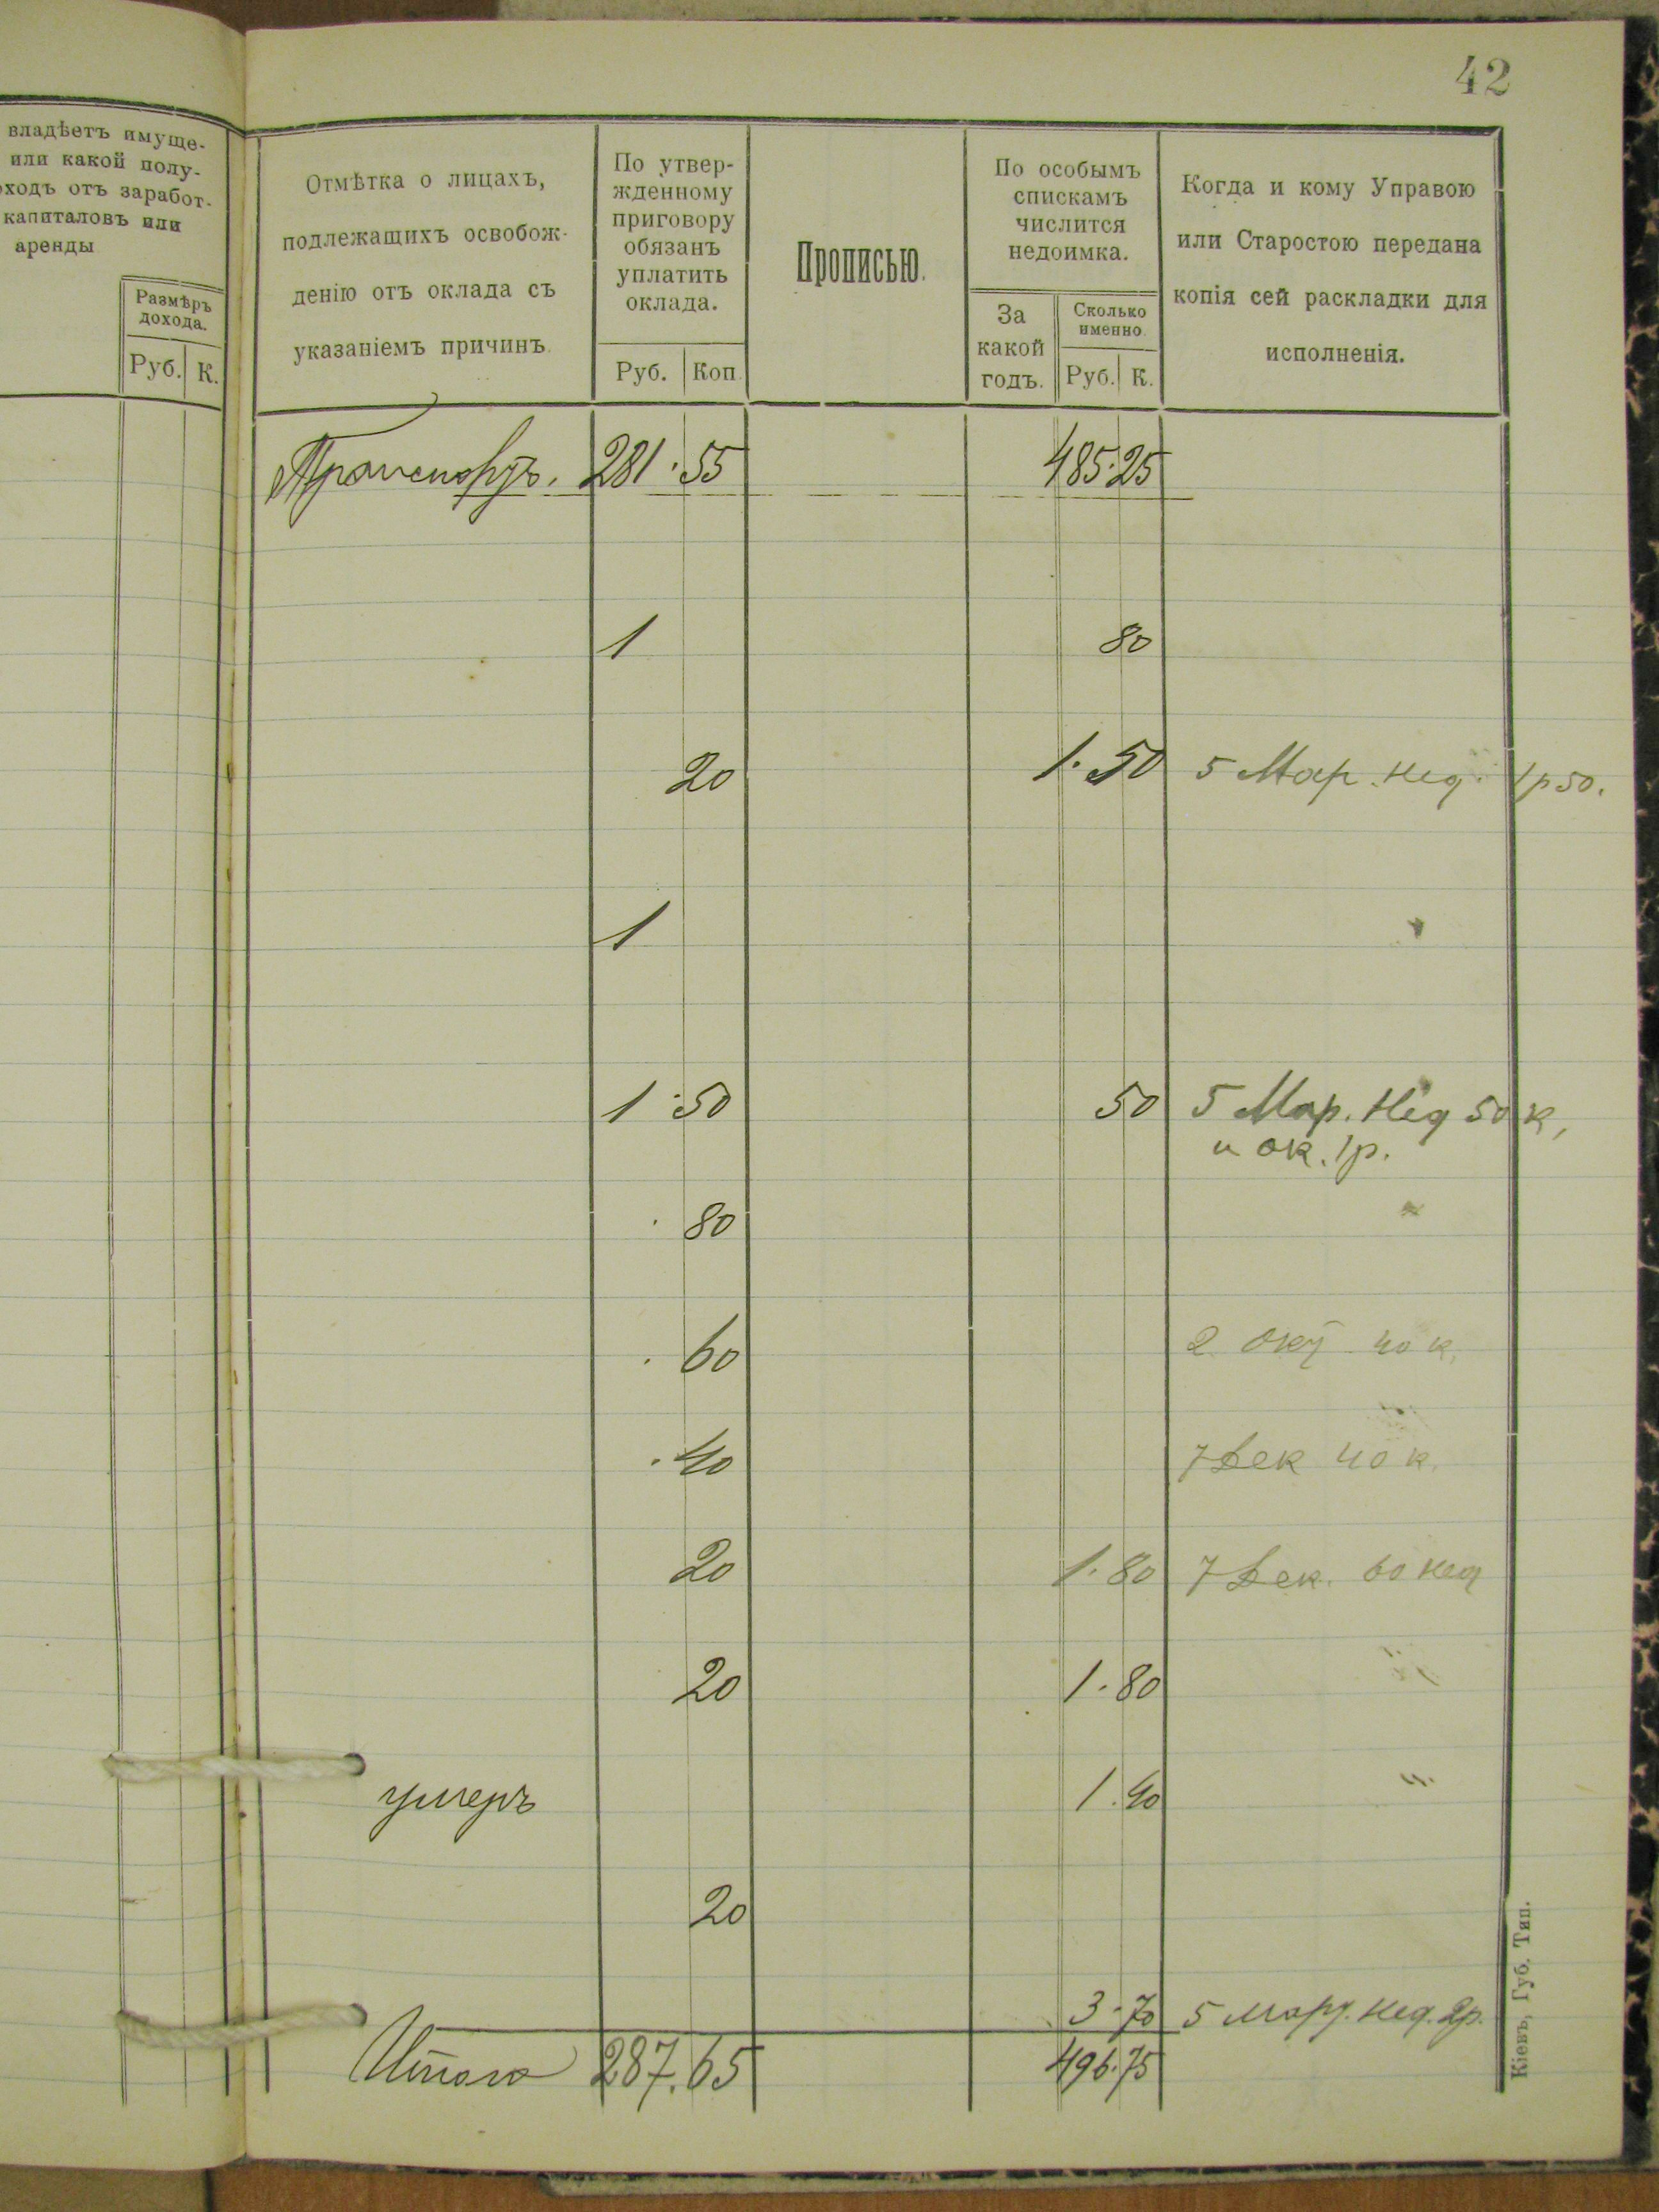 42
владѣетъ имуще-
или какой полу-
оходъ отъ заработ-
капиталовъ или
аренды
Размѣръ
дохода.
Руб. К.
Отмѣтка о лицахъ,
подлежащихъ освобож-
денію отъ оклада съ
указаніемъ причинъ.
По утвер-
жденному
приговору
обязанъ
уплатить
оклада.
Руб. Коп.
Прописью.
По особымъ
спискамъ
числится
недоимка.
За
какой
годъ.
Сколько
именно.
Руб. К.
Когда и кому Управою
или Старостою передана
копія сей раскладки для
исполненія.
Транспортъ. 281.55 485.25
1 80
20 1.50 5 Мар. нед. 1р50.
1
1.50 50 5 Мар. Нед 50 к,
и ок. 1р.
80
60 2 Окт 40 к.
40 7 Дек 40 к.
20 1.80 7 Дек. 60 нед
20 1.80
умеръ 1.40
20
3.70 5 март. нед. 2р.
Итого 287.65 496.75
Кіевъ, Губ. Тип.